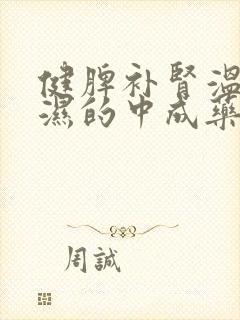 健脾补腎温
濕的中成藥
周誠